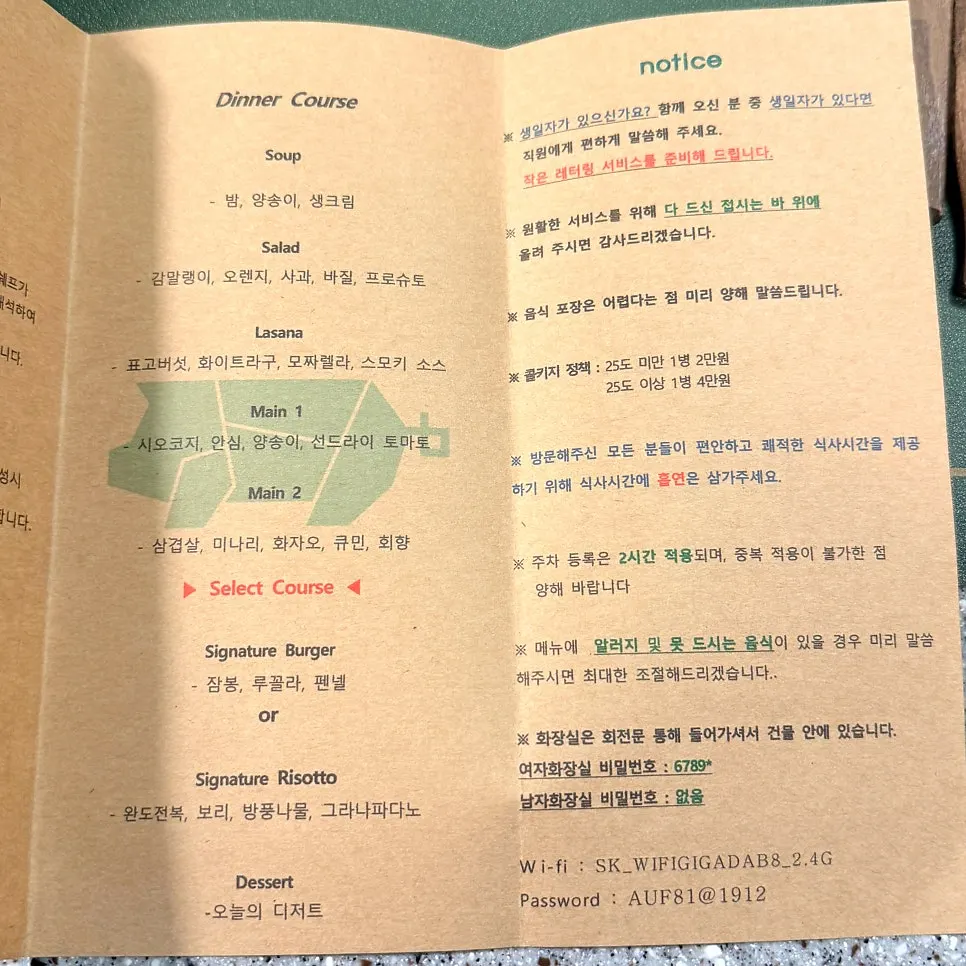 쉐프가
해석하여
니다.
성시
합니다.
Dinner Course
Soup
- 밤, 양송이, 생크림
Salad
- 감말랭이, 오렌지, 사과, 바질, 프로슈토
Lasana
- 표고버섯, 화이트라구, 모짜렐라, 스모키 소스
Main 1
- 시오코지, 안심, 양송이, 선드라이 토마토
Main 2
- 삼겹살, 미나리, 화자오, 큐민, 회향
▶ Select Course ◀
Signature Burger
- 잠봉, 루꼴라, 펜넬
or
Signature Risotto
- 완도전복, 보리, 방풍나물, 그라나파다노
Dessert
-오늘의 디저트
notice
※ 생일자가 있으신가요? 함께 오신 분 중 생일자가 있다면
직원에게 편하게 말씀해 주세요.
작은 레터링 서비스를 준비해 드립니다.
※ 원활한 서비스를 위해 다 드신 접시는 바 위에
올려 주시면 감사드리겠습니다.
※ 음식 포장은 어렵다는 점 미리 양해 말씀드립니다.
※ 콜키지 정책 : 25도 미만 1병 2만원
25도 이상 1병 4만원
※ 방문해주신 모든 분들이 편안하고 쾌적한 식사시간을 제공
하기 위해 식사시간에 흡연은 삼가주세요.
※ 주차 등록은 2시간 적용되며, 중복 적용이 불가한 점
양해 바랍니다
※ 메뉴에 알러지 및 못 드시는 음식이 있을 경우 미리 말씀
해주시면 최대한 조절해드리겠습니다..
※ 화장실은 회전문 통해 들어가셔서 건물 안에 있습니다.
여자화장실 비밀번호 : 6789*
남자화장실 비밀번호 : 없음
Wi-fi : SK_WIFIGIGADAB8_2.4G
Password : AUF81@1912